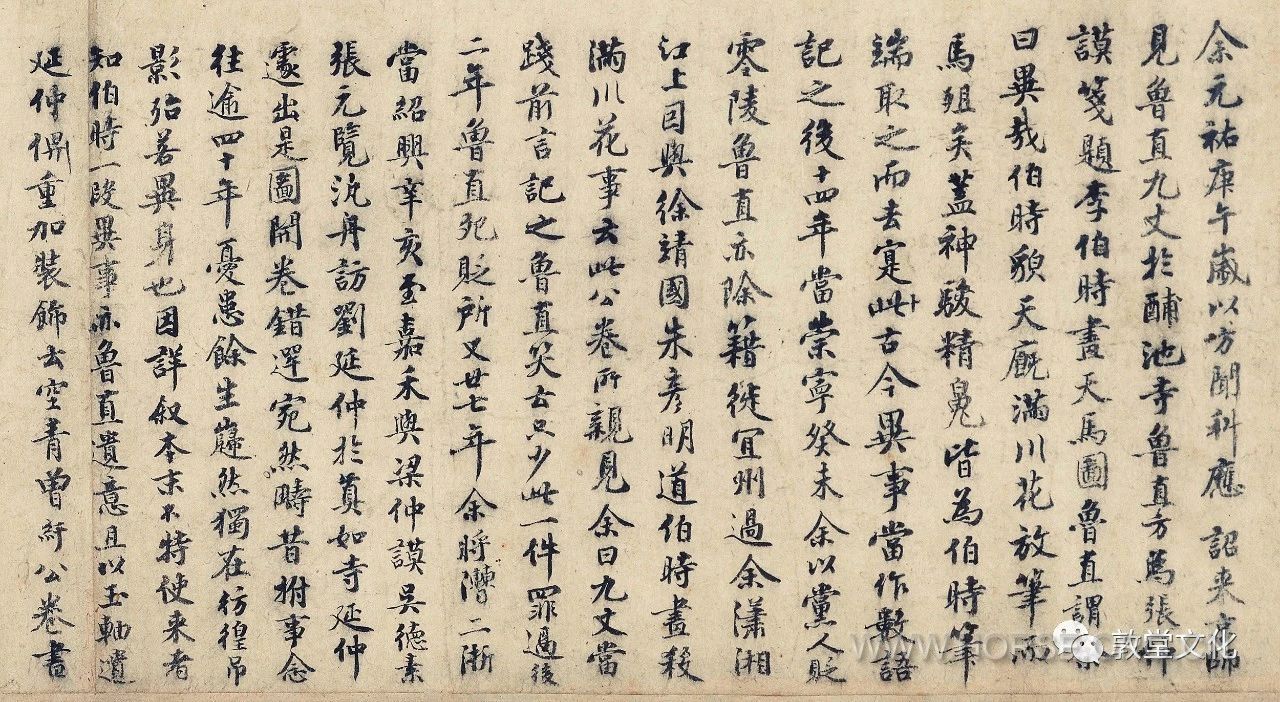 余元祐庚午歲以方聞科應詔来京師
見魯直九丈於酺池寺魯直方為張仲
謨箋題李伯時畫天馬圖魯直謂余
曰異哉伯時貌天厩滿川花放筆而
馬殂矣蓋神駿精魄皆為伯時筆
端取之而去寔此古今異事當作數語
記之後十四年當崇寧癸未余以黨人貶
零陵魯直亦除籍徙宜州過余瀟湘
江上因與徐靖國朱彦明道伯時畫殺
滿川花事云此公卷所親見余曰九丈當
踐前言記之魯直笑云只少此一件罪過後
二年魯直死貶所又廿七年余將漕二浙
當紹興辛亥至嘉禾與梁仲謨吳德素
張元覽汎舟訪劉延仲於真如寺延仲
遽出是圖開卷錯愕宛然疇昔拊事念
往逾四十年憂患餘生巋然獨在彷徨吊
影殆若異身也因詳叙本末不特使来者
知伯時一段異事亦魯直遺意且以玉軸遺
延仲俾重加裝飾云空青曾紆公卷書
敦堂文化